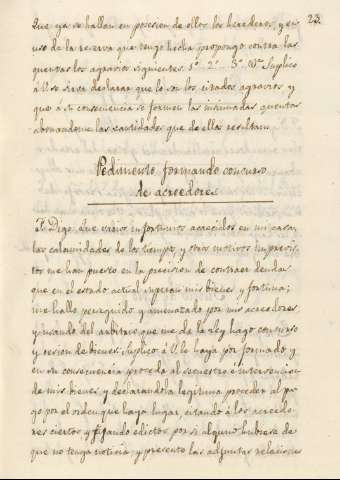 23.
Que ya se hallan en posesion de ellos los herederos, y en
uso de la reserva que tengo hecha propongo contra las
quentas los agravios siguientes. 1º 2º 3º Suplico
á V. se sirva declarar que lo son los citados agravios y
que á su consecuencia se formen las insinuadas quentas
abonandome las cantidades que de ellas resultan.
Pedimento formando concurso
de acreedores
F. Digo: Que varios infortunios acaecidos en mi casa,
las calamidades de los tiempos y otros motivos imprevis-
tos me han puesto en la precision de contraer deudas
que en el estado actual superan mis bienes y fortuna;
me hallo perseguido y amenazado por mis acreedores
y usando del arbitrio que me da la ley hago concurso
y cesion de bienes; Suplico á V. le haya por formado, y
en su consecuencia proceda al secuestro é intervencion
de mis bienes, y declarandola legitima proceder al pa-
go por el orden que haya lugar, citando á los acreedo-
res ciertos y fijando edictos por si alguno hubiese de
que no tenga noticia y presento las adjuntas relaciones